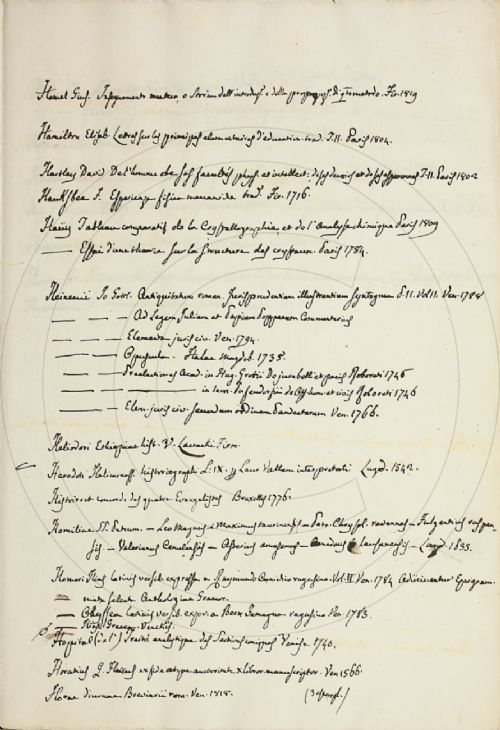 Hamel Gius. Insegnamento mutuo, o Storia dell'introduz. e della propagaz. di q.to metodo. Fir. 1819
Hamilton Elisab. Lettres sur les principes elementaires d'education trad. T. II. Paris 1804.
Hartley David De l'homme de ses facultés phys. et intellect: T. II. Paris 1802
Hauksbee F. Esperienze fisico meccaniche trad. Fir. 1716.
Haüy Tableau comparatif de la Crystallographie, et de l'Analyse chimique Paris 1809
—— Essai d'une théorie sur la structure des crystaux. Paris 1784.
Heineccii Jo Gottl. Antiquitatum roman. Jurisprudentiam illustrantium Syntagma Vol. II. Ven. 1788
— — — Ad Legem Juliam et Papiam Poppaeam Commentarius
— — — Elementa juris civ. Ven. 1794.
— — — Opusculum. Halae Magdeb. 1735.
— — — Praelectiones Acad. in Hug. Grotii De jure belli et pacis Roboreti 1746
— — — in Sam. Pufendorfii de Officio hom. et civis Roboreti 1746
— — — Elem. juris civ. secundum ordinem Pandectarum Ven. 1766.
Heliodori Ethiopicae hist.
Herodoti Halicarnass. historiographi L. IX. Laur. Vallam interprete Lugd. 1542.
Histoire et concorde des quatre Evangelistes Bruxelles 1776.
Homiliae SS. Patrum. — Leo Magnus — Maximus taurinensis — Petr. Chrysol. ravennas — Fulgentius ruspen-
sis — Valerianus Cemeliensis — Asterius amasenus — Lugd. 1633.
Homeri Ilias latinis versib. expressa a Raymundo Cunichio ragusino. Vol. II. Ven. 1784 Epigram-
mata selecta Anthologiae Graecor.
— Odyssea latinis versib. expr. a Bern. Zamagna ragusino Ven. 1783.
Hopital (de l') Traité analytique des Sections coniques Venise 1740.
Horatius Q. Flaccus ex fide atque auctoritate X librorum manuscriptor. Ven 1566.
Horae diurnae Breviarii rom. Ven. 1818.